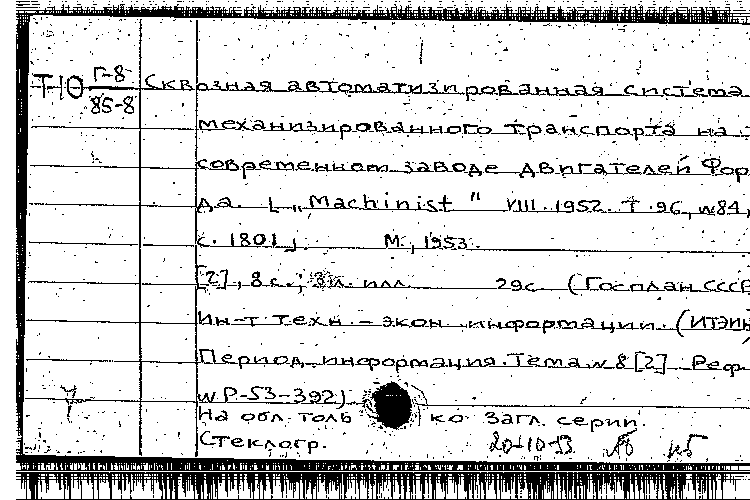 Т-10 Г-8/85-8 Сквозная автоматизированная система
механизированного транспорта на
современном заводе двигателей Фор
да. [„Machinist" VIII.1952. т.96, №84,
с. 1801] М., 1953.
[2], 8 с.; илл. 29с. (Госплан СССР
Ин-т техн.-экон. информации. (ИТЭИН)
Период. информация. Тема №8 [2] Реф.
№Р-53-392)
На обл. только загл. серии.
Стеклогр. 20-10-53